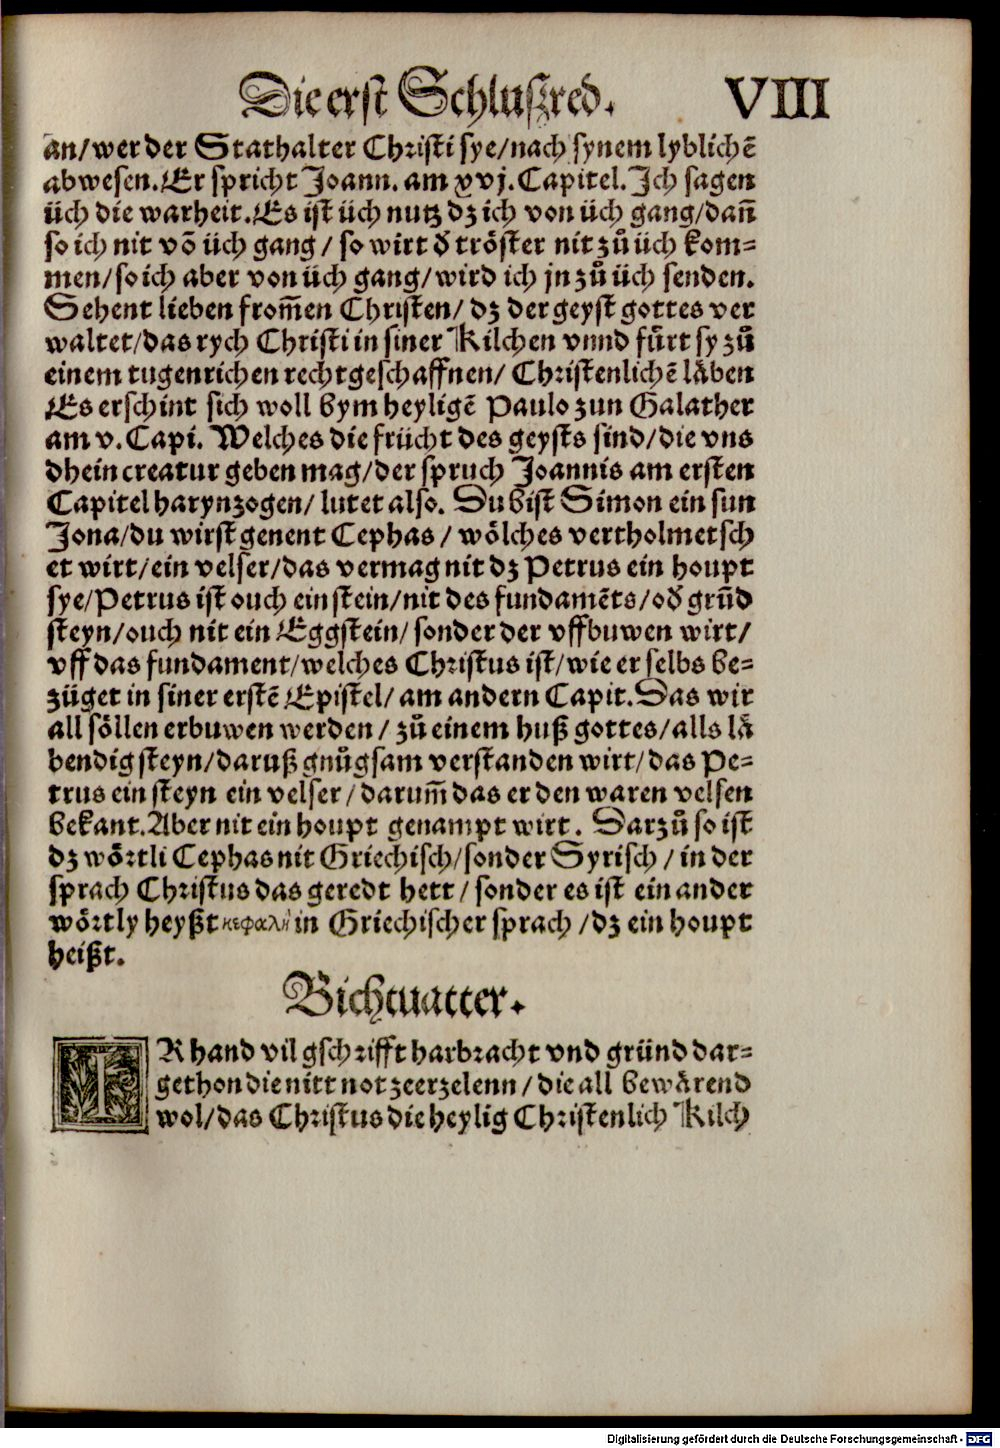 Die erst Schluſzred. VIII
an/wer der Stathalter Christi sye/nach synem lyblichē
abwesen. Er spricht Joann. am xvj. Capitel. Ich sagen
üch die warheit. Es ist üch nutz dz ich von üch gang/dañ
so ich nit võ üch gang/ so wirt đ tröster nit zů üch kom-
men/so ich aber von üch gang/wird ich jn zů üch senden.
Sehent lieben from̃en Christen/ dz der geyst gottes ver
waltet/das rych Christi in siner Kilchen vnnd fürt sy zů
einem tugenrichen rechtgeschaffnen/ Christenlichē läben
Es erschint sich woll bym heyligē Paulo zun Galather
am v. Capi. Welches die frücht des geysts sind/die vns
dhein creatur geben mag/der spruch Joannis am ersten
Capitel harynzogen/ lutet also. Du bist Simon ein sun
Jona/du wirst genent Cephas/ wölches vertholmetsch
et wirt/ein velser/das vermag nit dz Petrus ein houpt
sye/Petrus ist ouch ein stein/nit des fundamēts/ođ grũd
steyn/ouch nit ein Eggstein/ sonder der vffbuwen wirt/
vff das fundament/welches Christus ist/wie er selbs be-
züget in siner erstē Epistel/ am andern Capit. Das wir
all söllen erbuwen werden/ zů einem huß gottes/alls lä
bendig steyn/daruß gnůgsam verstanden wirt/das Pe-
trus ein steyn ein velser/darum̃ das er den waren velsen
bekant. Aber nit ein houpt genampt wirt. Darzů so ist
dz wörtli Cephas nit Griechisch/sonder Syrisch/in der
sprach Christus das geredt hett/ sonder es ist ein ander
wörtly heyßt κεφαλὴ in Griechischer sprach/dz ein houpt
heißt.
Bichtuatter.
IR hand vil gschrifft harbracht vnd gründ dar-
gethon die nitt not zeerzelenn/die all bewärend
wol/das Christus die heylig Christenlich Kilch
Digitalisierung gefördert durch die Deutsche Forschungsgemeinschaft - DFG